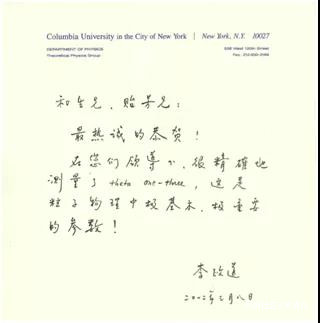 Columbia University in the City of New York | New York, N.Y. 10027
DEPARTMENT OF PHYSICS 538 West 120th Street
Theoretical Physics Group
和生兄、贻芳兄：
最热诚的恭贺！
在您们领导下，很精確地
测量了 theta one-three，这是
粒子物理中极基本、极重要
的参数！
李政道
二〇一二年三月八日